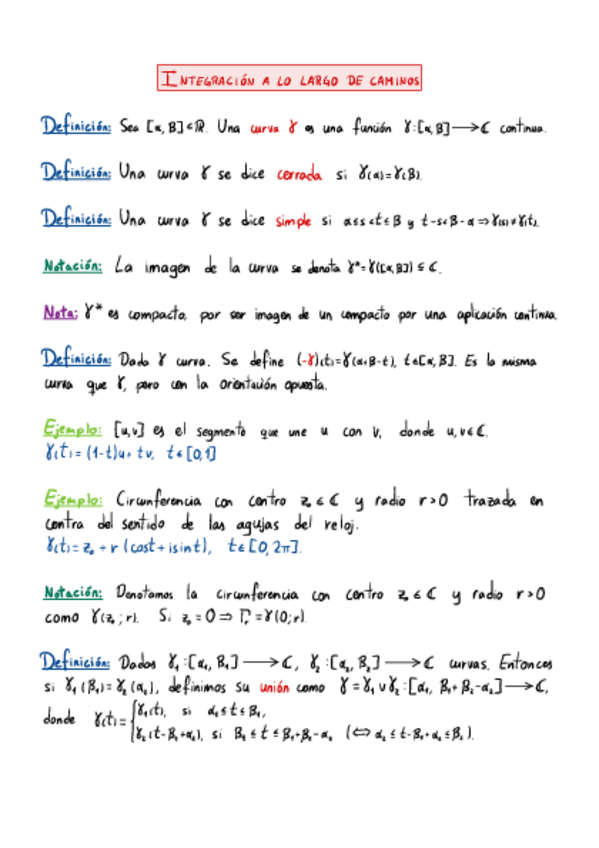 INTEGRACIÓN A LO LARGO DE CAMINOS
Definición: Sea [α, β]⊂ℝ. Una curva γ es una función γ:[α, β]⟶ℂ continua.
Definición: Una curva γ se dice cerrada si γ(α)=γ(β).
Definición: Una curva γ se dice simple si α≤s<t≤β y t-s<β-α ⇒ γ(s)≠γ(t).
Notación: La imagen de la curva se denota γ*=γ([α, β]) ⊆ ℂ.
Nota: γ* es compacto, por ser imagen de un compacto por una aplicación continua.
Definición: Dada γ curva. Se define (-γ)(t)=γ(α+β-t), t∈[α, β]. Es la misma
curva que γ, pero con la orientación opuesta.
Ejemplo: [u,v] es el segmento que une u con v, donde u,v∈ℂ.
γ(t)=(1-t)u+tv, t∈[0,1]
Ejemplo: Circunferencia con centro z₀∈ℂ y radio r>0 trazada en
contra del sentido de las agujas del reloj.
γ(t)=z₀+r(cost+isint), t∈[0,2π].
Notación: Denotamos la circunferencia con centro z₀∈ℂ y radio r>0
como γ(z₀;r). Si z₀=0 ⇒ Γᵣ=γ(0;r).
Definición: Dados γ₁:[α₁, β₁]⟶ℂ, γ₂:[α₂, β₂]⟶ℂ curvas. Entonces
si γ₁(β₁)=γ₂(α₂), definimos su unión como γ=γ₁∪γ₂:[α₁, β₁+β₂-α₂]⟶ℂ,
donde γ(t)={γ₁(t), si α₁≤t≤β₁,
γ₂(t-β₁+α₂), si β₁≤t≤β₁+β₂-α₂ (⇔ α₂≤t-β₁+α₂≤β₂).